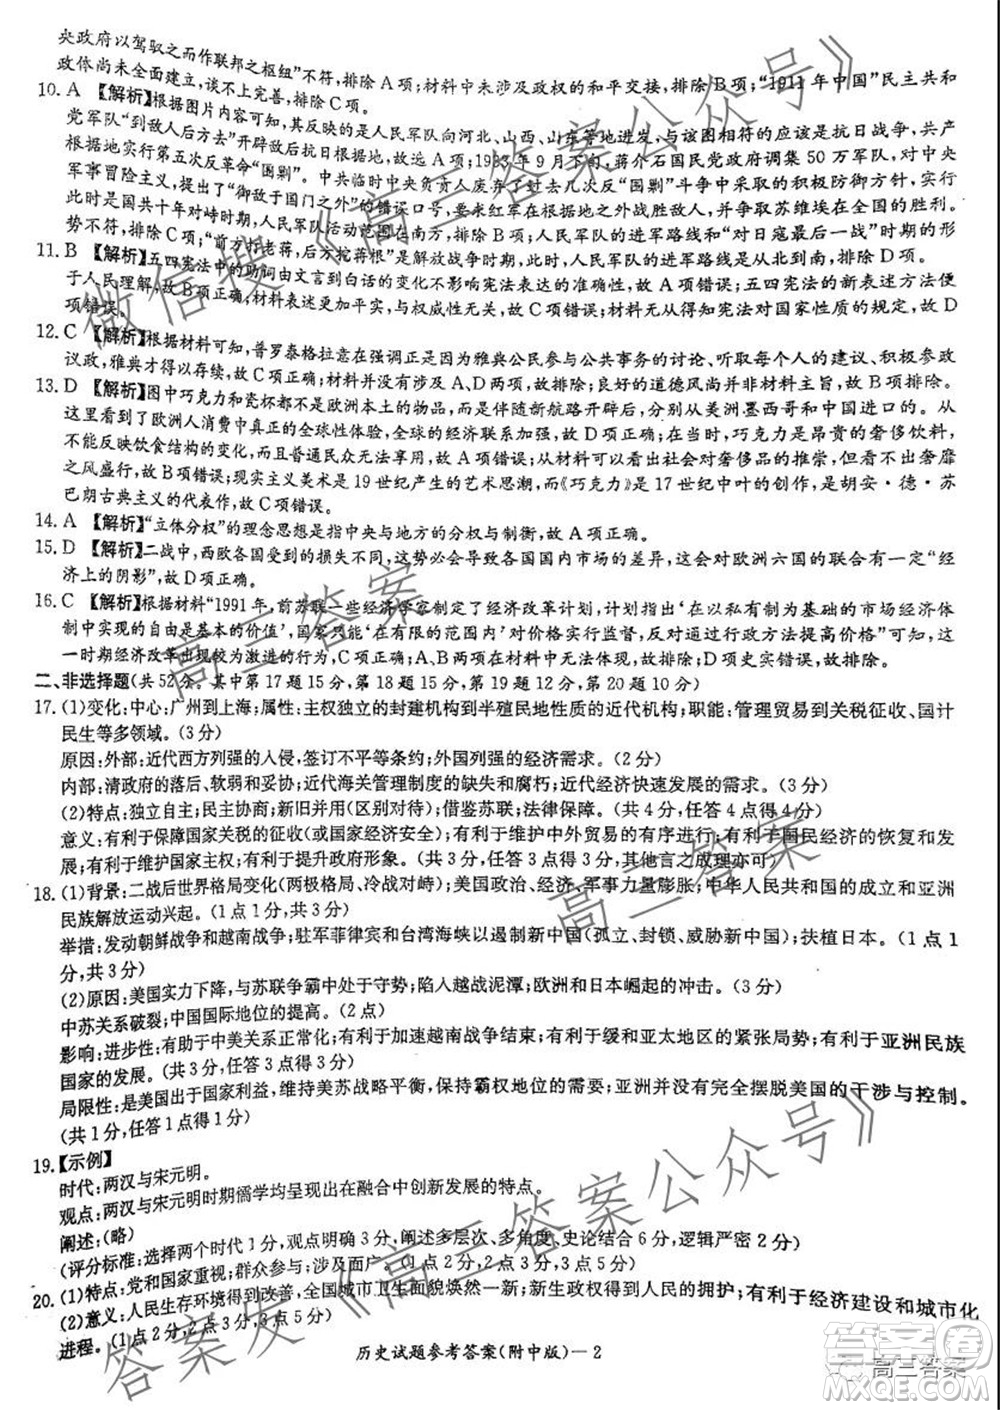 央政府以驾驭之而作联邦之枢纽”不符,排除A项;材料中未涉及政权的和平交接,排除B项;“1911年中国”民主共和
政体尚未全面建立,谈不上完善,排除C项。
10. A 【解析】根据图片内容可知,其反映的是人民军队向河北、山西、山东等地进发,与该图相符合的应该是抗日战争,共产
党军队“到敌人后方去”开辟敌后抗日根据地,故选A项;1933年9月下旬,蒋介石国民党政府调集50万军队,对中央
根据地实行第五次反革命“围剿”。中共临时中央负责人废弃了过去几次反“围剿”斗争中采取的积极防御方针,实行
军事冒险主义,提出了“御敌于国门之外”的错误口号,要求红军在根据地之外战胜敌人,争取苏维埃在全国的胜利。
此时是国共十年对峙时期,人民军队活动范围在南方,排除B项;人民军队的进军路线和“对日寇最后一战”时期的形
势不符,排除C项;“前方打老蒋,后方挖蒋根”是解放战争时期,人民军队的进军路线是从北到南,排除D项。
11. B 【解析】五四宪法中的助词由文言到白话的变化不影响宪法表达的准确性,故A项错误;五四宪法的新表述方法便
于人民理解,故B项正确;材料表述更新,与权威性无关,故C项错误;材料表述更新与宪法对国家性质的规定无关,故D
项错误。
12. C 【解析】根据材料可知,普罗泰格拉意在强调,因为雅典公民参与公共事务的讨论、听取每个人的建议、积极参政
议政,雅典才得以存续,故C项正确;材料并没有涉及A、D两项,故排除;良好的道德风尚并非材料主旨,故B项排除。
13. D 【解析】图中巧克力和瓷杯都不是欧洲本土的物品,而是伴随新航路开辟后,分别从美洲墨西哥和中国进口的。从
这里看到了欧洲人消费中真正的全球性体验,全球的经济联系加强,故D项正确;当时,巧克力是昂贵的奢侈饮料,
不能反映饮食结构的变化,普通民众无法享用,故A项错误;从材料中看不出对奢侈品的推崇,但看不出奢靡
之风盛行,故B项错误;现实主义美术是19世纪产生的艺术思潮,而《巧克力》是17世纪中叶的作品,是胡安·德·苏
巴朗古典主义的代表作,故C项错误。
14. A 【解析】“立体分权”的理念思想是指中央与地方的分权与制衡,故A项正确。
15. D 【解析】二战中,西欧各国受的损失不同,这势必会导致各国国内市场的差异,这会对欧洲六国的联合有一定“经
济上的阴影”,故D项正确。
16. C 【解析】根据材料“1991年,前苏联一些经济学家制定了经济改革计划,计划指出‘在以私有制为基础的市场经济体
制中实现的自由是基本的价值’,国家只能‘在有限的范围内’对价格实行监督,反对通过行政方法提高价格”可知,这
一时期经济改革出现较为激进的行为,故C项正确;A、B两项在材料中无法体现,故排除;D项史实错误,故排除。
二、非选择题(共52分。其中第17题15分,第18题15分,第19题12分,第20题10分)
17. (1)变化:中心:广州到上海;属性:主权独立的封建机构到半殖民地性质的近代机构;职能:管理贸易到关税征收、国计
民生等多领域。(3分)
原因:外部:近代西方列强的入侵,签订不平等条约;外国列强的经济需求。(2分)
内部:清政府的落后、软弱和妥协;近代海关管理制度的缺失和腐朽;近代经济快速发展的需求。(3分)
(2)特点:独立自主;民主协商;新旧并用(区别对待);借鉴苏联;法律保障。(共4分,任答4点得4分)
意义:有利于保障国家关税的征收(或国家经济安全);有利于维护中外贸易的有序进行;有利于国民经济的恢复和发
展;有利于维护国家主权;有利于提升政府形象。(共3分,任答3点得3分,其他言之成理亦可)
18. (1)背景:二战后世界格局变化(两极格局、冷战对峙);美国政治、经济、军事力量膨胀;中华人民共和国的成立和亚洲
民族解放运动兴起。(1点1分,共3分)
举措:发动朝鲜战争和越南战争;驻军菲律宾和台湾海峡以遏制新中国(孤立、封锁、威胁新中国);扶植日本。(1点1
分,共3分)
(2)原因:美国实力下降,与苏联争霸中处于守势;陷入越战泥潭;欧洲和日本崛起的冲击。(3分)
中苏关系破裂;中国国际地位的提高。(2点)
影响:进步性:有助于中美关系正常化;有利于加速越南战争结束;有利于缓和亚太地区的紧张局势;有利于亚洲民族
国家的发展。(共3分,任答3点得3分)
局限性:是美国出于国家利益,维持美苏战略平衡,保持霸权地位的需要;亚洲并没有完全摆脱美国的干涉与控制。
(共1分,任答1点得1分)
19. 【示例】
时代:两汉与宋元明。
观点:两汉与宋元明时期儒学均呈现出在融合中创新发展的特点。
阐述:(略)
(评分标准:选择两个时代1分,观点明确3分,阐述多层次、多角度、史论结合6分,逻辑严密2分)
20. (1)特点:党和国家重视;群众参与;涉及面广。(1点2分,2点3分,3点5分)
(2)意义:人民生存环境得到改善,全国城市卫生面貌焕然一新;新生政权得到人民的拥护;有利于经济建设和城市化
进程。(1点2分,2点3分,3点5分)
历史试题参考答案(附中版)—2
微信搜《高三答案公众号》
高三答案
高三答案
答案发《高三答案公众号》
高三答案
答案圈
MXQE.COM